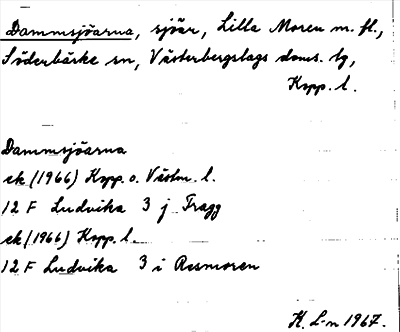 Dammsjöarna, sjöar, Lilla Moren m. fl.,
Söderbärke sn, Västerbergslags doms. tg,
Kopp. l.
Dammsjöarna
ek (1966) Kopp. o. Västm. l.
12 F Ludvika 3 j Tragg
ek (1966) Kopp. l.
12 F Ludvika 3 i Resmoren
K. L-n 1967.